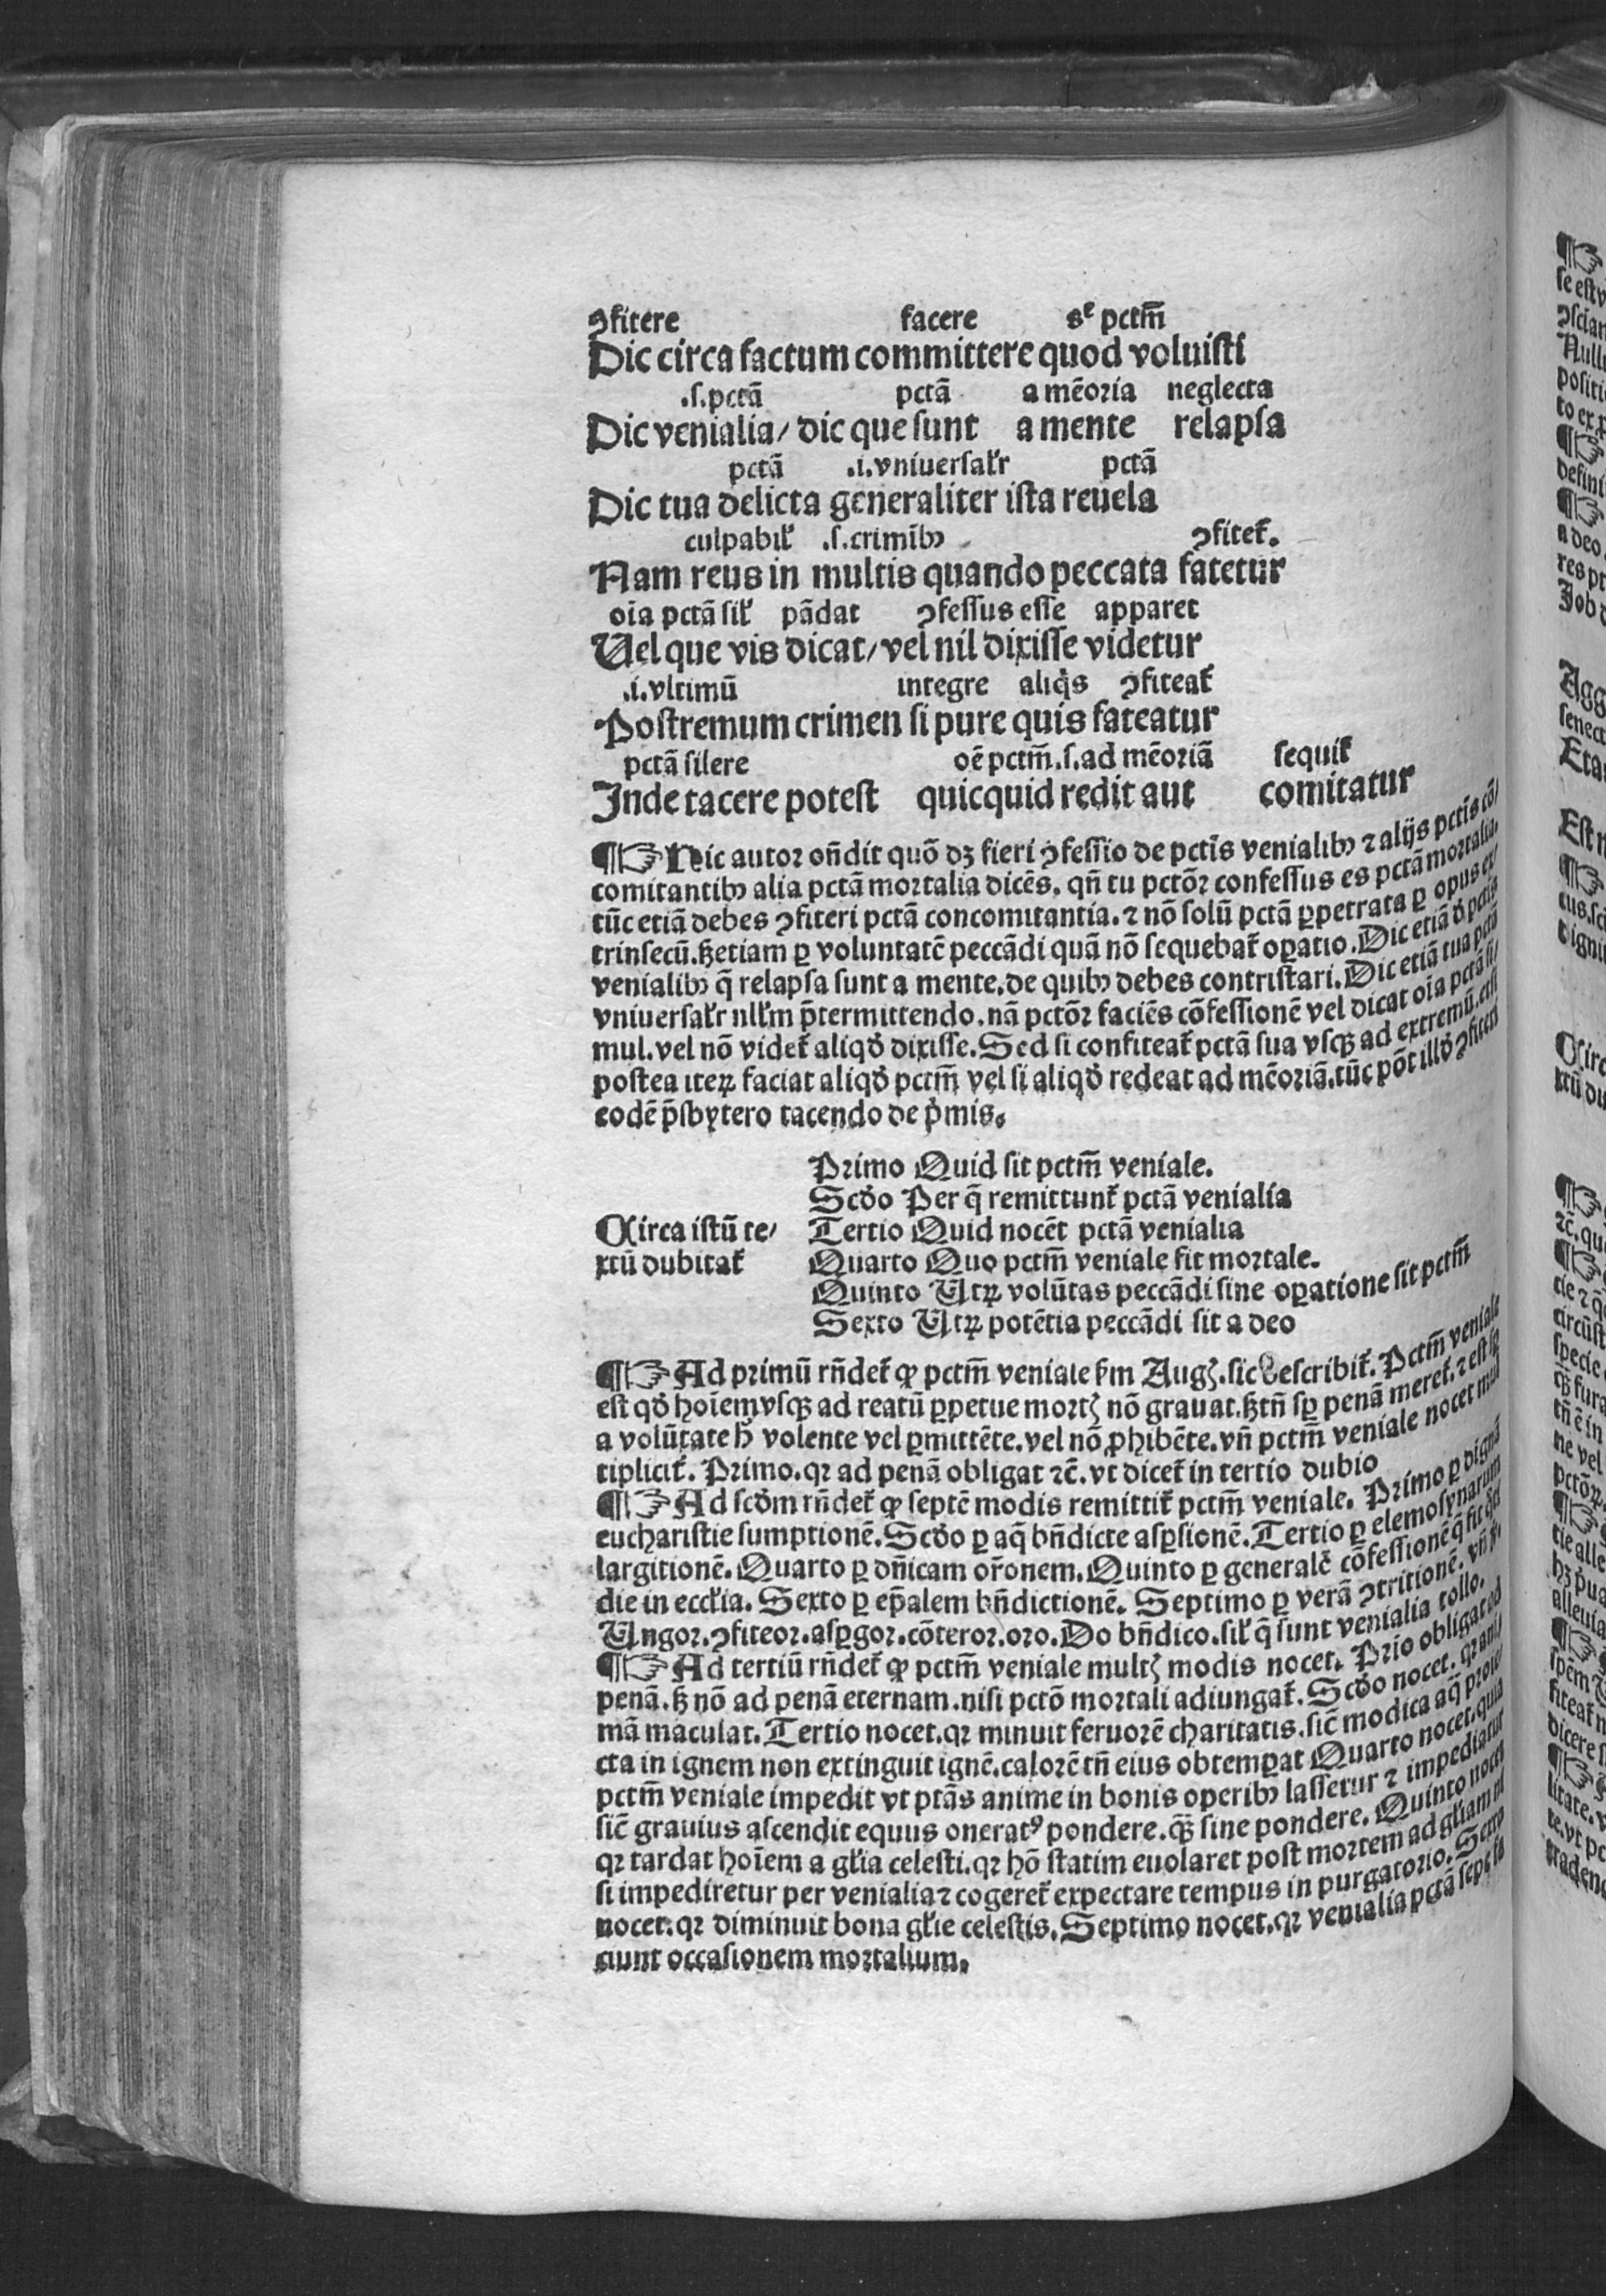 ꝯfitere facere sꝫ pctm̄
Dic circa factum committere quod voluisti
.s.pctā pctā a mēoria neglecta
Dic venialia/ dic que sunt a mente relapsa
pctā .i.vniuersalr̄ pctā
Dic tua delicta generaliter ista reuela
culpabil̓ .s.crimībꝰ ꝯfitet̄.
Nam reus in multis quando peccata fatetur
oīa pctā sil̓ pādat ꝯfessus esse apparet
Uel que vis dicat/ vel nil dixisse videtur
.i.vltimū integre aliq̇s ꝯfiteat̄
Postremum crimen si pure quis fateatur
pctā silere oē pctm̄.s.ad mēoriā sequit̄
Inde tacere potest quicquid redit aut comitatur
¶☞Hic autor on̄dit quō dꝫ fieri ꝯfessio de pctīs venialibꝰ ⁊ alijs pctīs cō/
comitantibꝰ alia pctā mortalia dicēs. qn̄ tu pctōꝛ confessus es pctā mortalia.
tūc etiā debes ꝯfiteri pctā concomitantia. ⁊ nō solū pctā ꝑpetrata ꝑ opus ex/
trinsecū.ꜩetiam ꝑ voluntatē peccādi quā nō sequebat̄ oꝑatio. Dic etiā ď pctīs
venialibꝰ q̄ relapsa sunt a mente.de quibꝰ debes contristari. Dic etiā tua pctā
vniuersalr̄ nll̓m p̄termittendo. nā pctōꝛ faciēs cōfessionē vel dicat oīa pctā si/
mul. vel nō videt̄ aliqď dixisse. Sed si confiteat̄ pctā sua vsqꝫ ad extremū. etsi
postea iteꝝ faciat aliqď pctm̄ vel si aliqď redeat ad mēoriā.tūc pōt illď ꝯfiteri
eodē p̄sbytero tacendo de p̓mis.
Primo Quid sit pctm̄ veniale.
Scďo Per q̄ remittunt̄ pctā venialia
Circa istū te/ Tertio Quid nocēt pctā venialia
xtū dubitat̄ Quarto Quo pctm̄ veniale fit mortale.
Quinto Utꝝ volūtas peccādi sine oꝑatione sit pctm̄
Sexto Utꝝ potētia peccādi sit a deo
¶☞Ad primū rn̄det̄ ꝙ pctm̄ veniale ẜm Augꝭ. sic describit̄. Pctm̄ veniale
est qď hoīem vsqꝫ ad reatū ꝑpetue mortꝭ nō grauat.ꜩtn̄ sꝑ penā meret̄. ⁊ est sꝑ
a volūtate ḣ volente vel ꝑmittēte. vel nō ꝓhibēte. vn̄ pctm̄ veniale nocet mul
tiplicit̄. Primo. qꝛ ad penā obligat ⁊c̄. vt dicet̄ in tertio dubio
¶☞Ad scďm rn̄det̄ ꝙ septē modis remittit̄ pctm̄ veniale. Primo ꝑ dignā
eucharistie sumptionē. Scďo ꝑ aq̄ bn̄dicte asꝑsionē. Tertio ꝑ elemosynarum
largitionē. Quarto ꝑ dn̄icam or̄onem. Quinto ꝑ generalē cōfessionē q̄ fit q̇let
die in eccl̓ia. Sexto ꝑ ep̄alem bn̄dictionē. Septimo ꝑ verā ꝯtritionē. vn̄
Ungoꝛ. ꝯfiteoꝛ. asꝑgoꝛ. cōteroꝛ. oꝛo. Do bn̄dico. sil̓ q̄ sunt venialia tollo.
¶☞Ad tertiū rn̄det̄ ꝙ pctm̄ veniale multꝭ modis nocet. Prīo obligat ad
penā. ꜩ nō ad penā eternam. nisi pctō mortali adiungat̄. Scďo nocet. qꝛ ani/
mā maculat. Tertio nocet. qꝛ minuit feruorē charitatis. sic̄ modica aq̄ proie/
cta in ignem non extinguit ignē. calorē tn̄ eius obtemꝑat Quarto nocet. quia
pctm̄ veniale impedit vt ptās anime in bonis operibꝰ lassetur ⁊ impediatur
sic̄ grauius ascendit equus onerat⁹ pondere. qꝫ̄ sine pondere. Quinto nocet
qꝛ tardat hoīem a gl̓ia celesti. qꝛ hō statim euolaret post mortem ad gl̓iam ni
si impediretur per venialia ⁊ cogeret̄ expectare tempus in purgatorio. Sexto
nocet. qꝛ diminuit bona gl̓ie celestis. Septimo nocet. qꝛ venialia pctā sepe fa
ciunt occasionem mortalium.